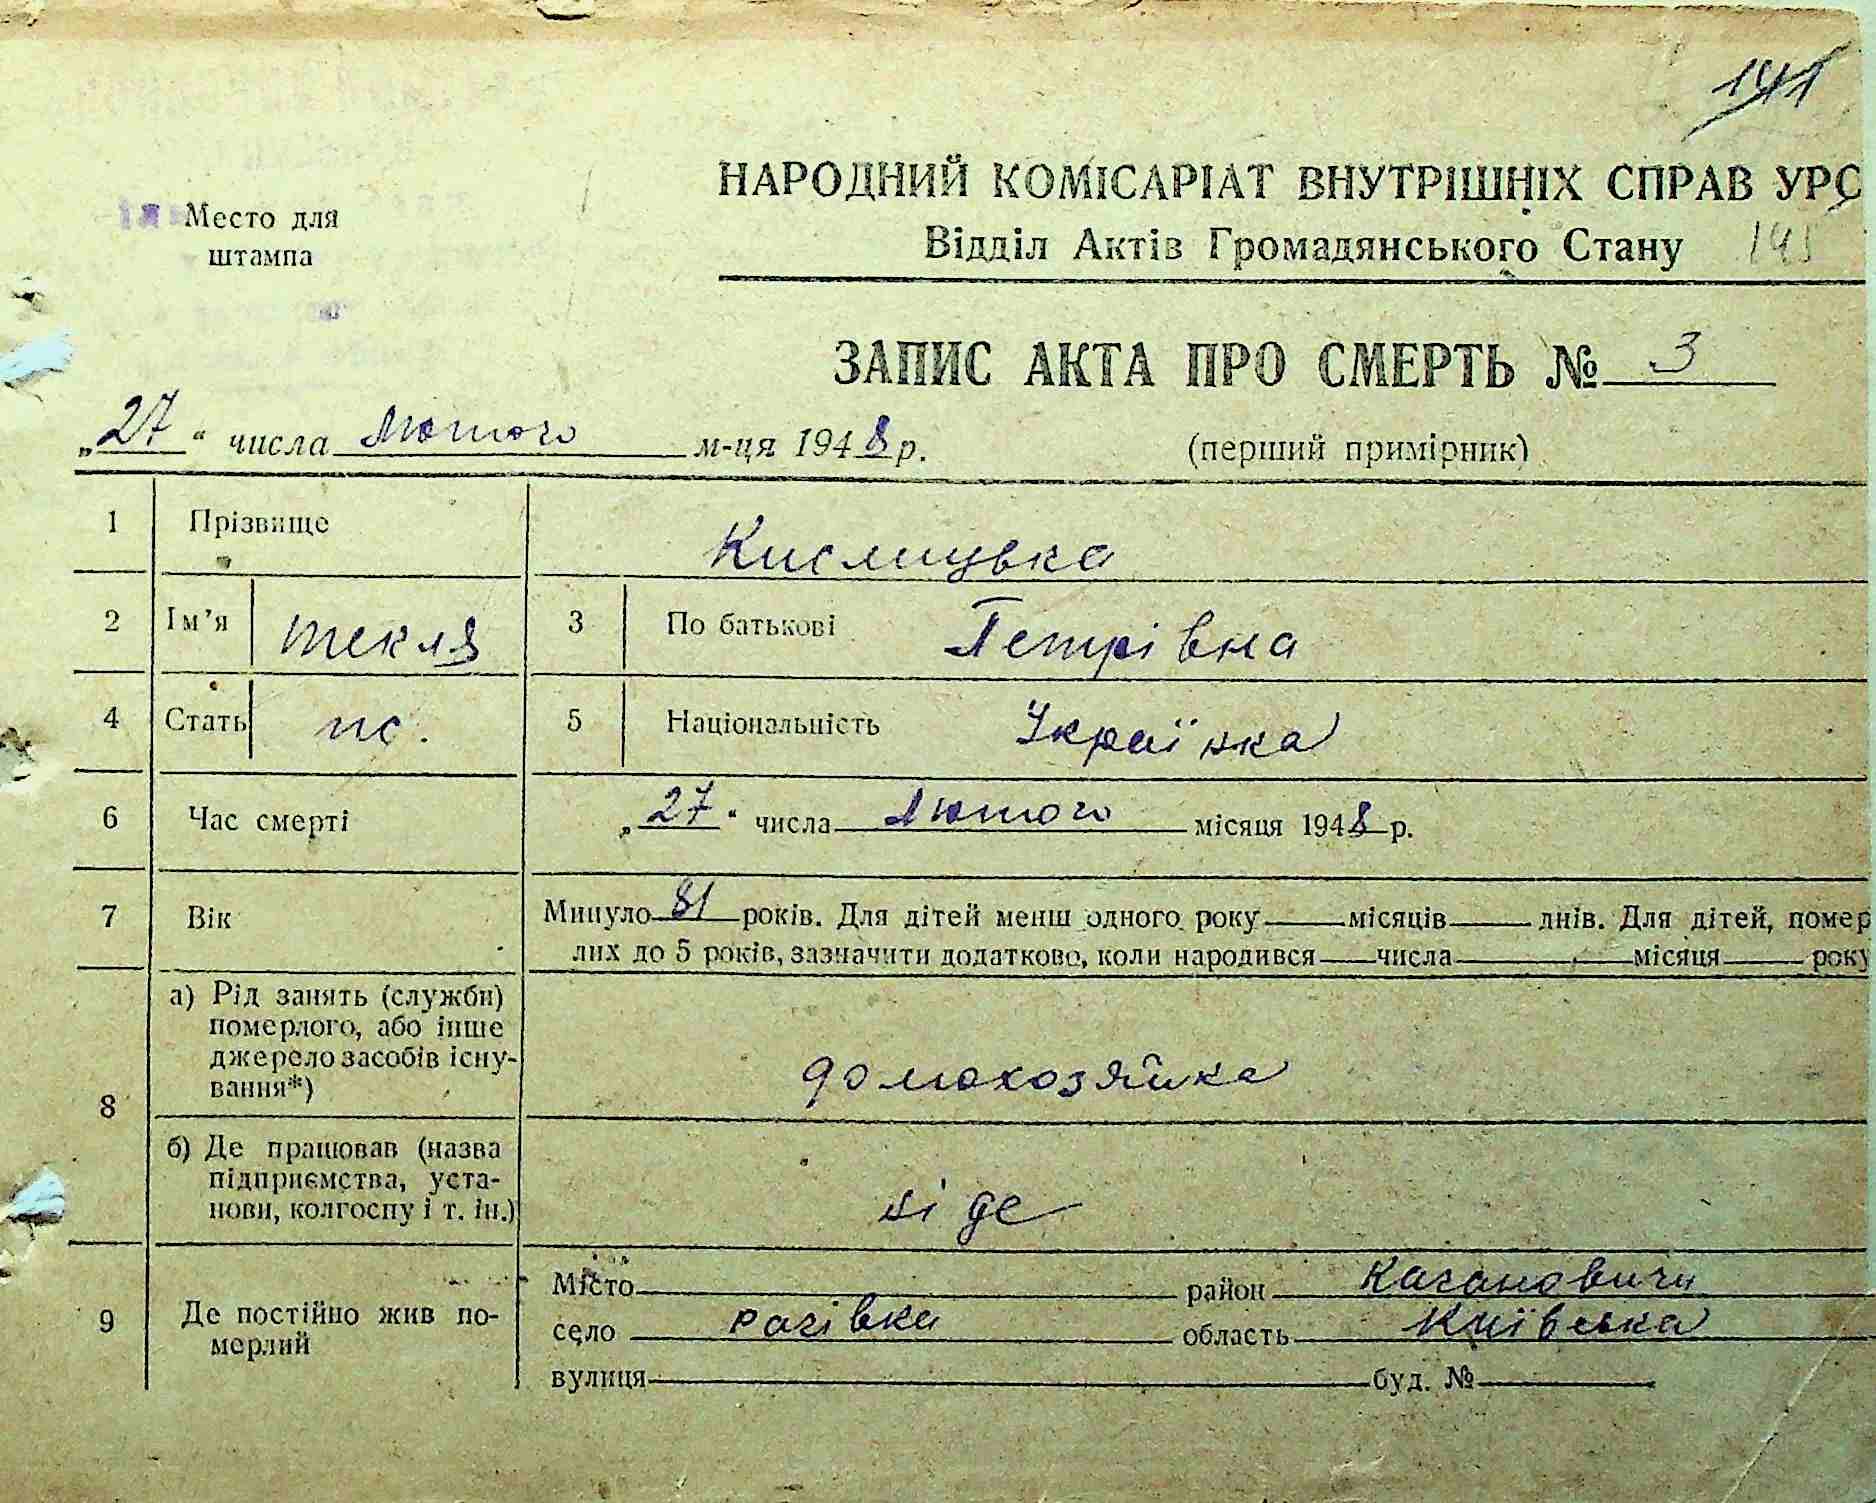 141
НАРОДНИЙ КОМІСАРІАТ ВНУТРІШНІХ СПРАВ УРС
Место для штампа
Відділ Актів Громадянського Стану 145
ЗАПИС АКТА ПРО СМЕРТЬ № 3
„27“ числа Лютого м-ця 1948 р. (перший примірник)
1 Прізвище Кислицька
2 Ім’я текля 3 По батькові Петрівна
4 Стать жс. 5 Національність Українка
6 Час смерті „27“ числа Лютого місяця 1948 р.
7 Вік Минуло 81 років. Для дітей менш одного року місяців днів. Для дітей, помер
лих до 5 років, зазначити додатково, коли народився числа місяця року
8 а) Рід занять (служби)
померлого, або інше
джерело засобів існу-
вання*) домохозяйка
б) Де працював (назва
підприємства, уста-
нови, колгоспу і т. ін.) ні де
9 Де постійно жив по-
мерлий
Місто район Кагановичи
село рагівка область Київська
вулиця буд. №